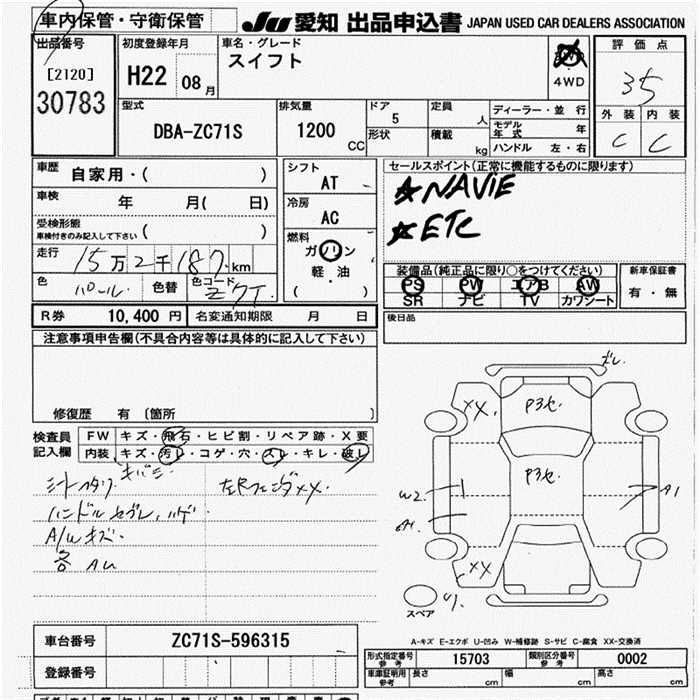 車内保管・守衛保管
JU 愛知 出品申込書 JAPAN USED CAR DEALERS ASSOCIATION
出品番号 初度登録年月 車名・グレード 評価点
[2120] H22 08月 スイフト 4WD 35
30783
型式 排気量 ドア 定員 ディーラー・並行 外装 内装
DBA-ZC71S 1200 CC 5 人 モデル年式 年 C C
形状 積載 kg ハンドル 左・右
車歴 自家用・( ) シフト AT セールスポイント(正常に機能するものに限ります)
車検 年 月( 日) 冷房 AC ★NAVIE
受検形態 車検付きのみ記入して下さい ( ) ★ETC
走行 15万2千187km 燃料 ガソリン 軽・油 ( )
装備品(純正品に限り○をつけてください) 新車保証書
色 パール. 色替 色コード Z7T.
PS PW エアB AW 有・無
SR ナビ TV カワシート
R券 10,400 円 名変通知期限 月 日 後日品
注意事項申告欄(不具合内容等は具体的に記入して下さい)
修復歴 有 〔箇所 〕
検査員記入欄 FW キズ・飛石・ヒビ割・リペア跡・X要
内装 キズ・汚レ・コゲ・穴・スレ・キレ・破レ
キバミ
左Rフェンダ XX.
ハンドル
A/W キズ.
各 AU
XX. P3セ.
P3セ.
W2. A1
A1.
XX
スペア
A-キズ E-エクボ U-凹み W-補修跡 S-サビ C-腐食 XX-交換済
車台番号 ZC71S-596315
形式指定番号 参考 15703 類別区分番号 参考 0002
登録番号
車庫証明用 参考 長さ cm 幅 cm 高さ cm